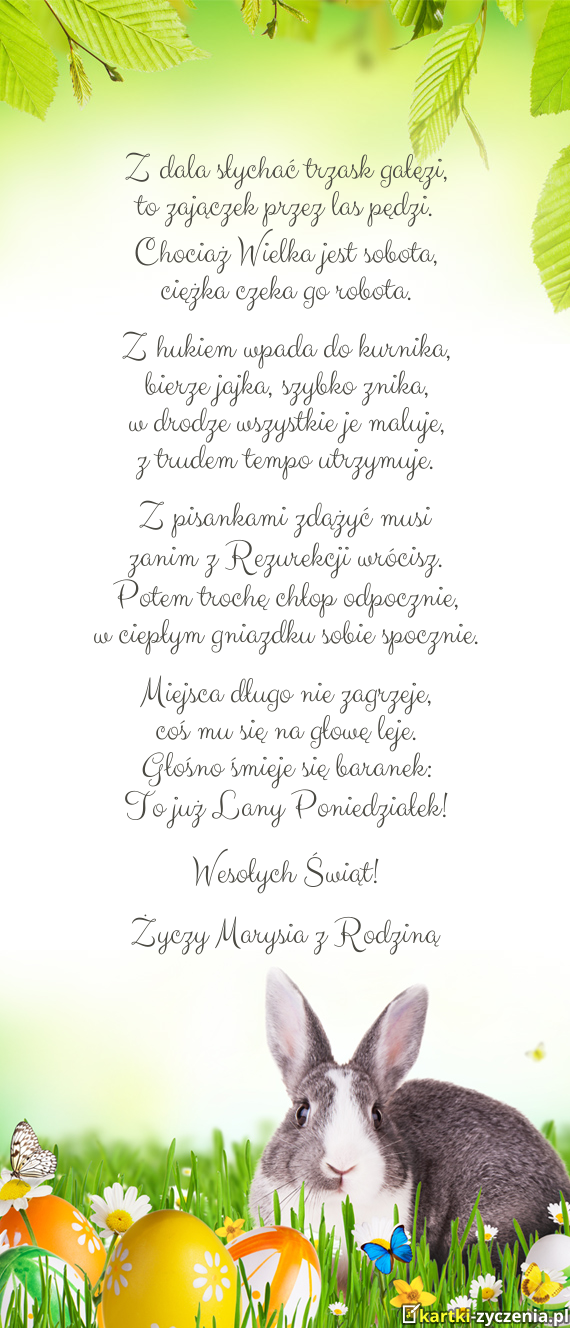 Z dala słychać trzask gałęzi,
to zajączek przez las pędzi.
Chociaż Wielka jest sobota,
ciężka czeka go robota.
Z hukiem wpada do kurnika,
bierze jajka, szybko znika,
w drodze wszystkie je maluje,
z trudem tempo utrzymuje.
Z pisankami zdążyć musi
zanim z Rezurekcji wrócisz.
Potem trochę chłop odpocznie,
w ciepłym gniazdku sobie spocznie.
Miejsca długo nie zagrzeje,
coś mu się na głowę leje.
Głośno śmieje się baranek:
To już Lany Poniedziałek!
Wesołych Świąt!
Życzy Marysia z Rodziną
kartki-zyczenia.pl